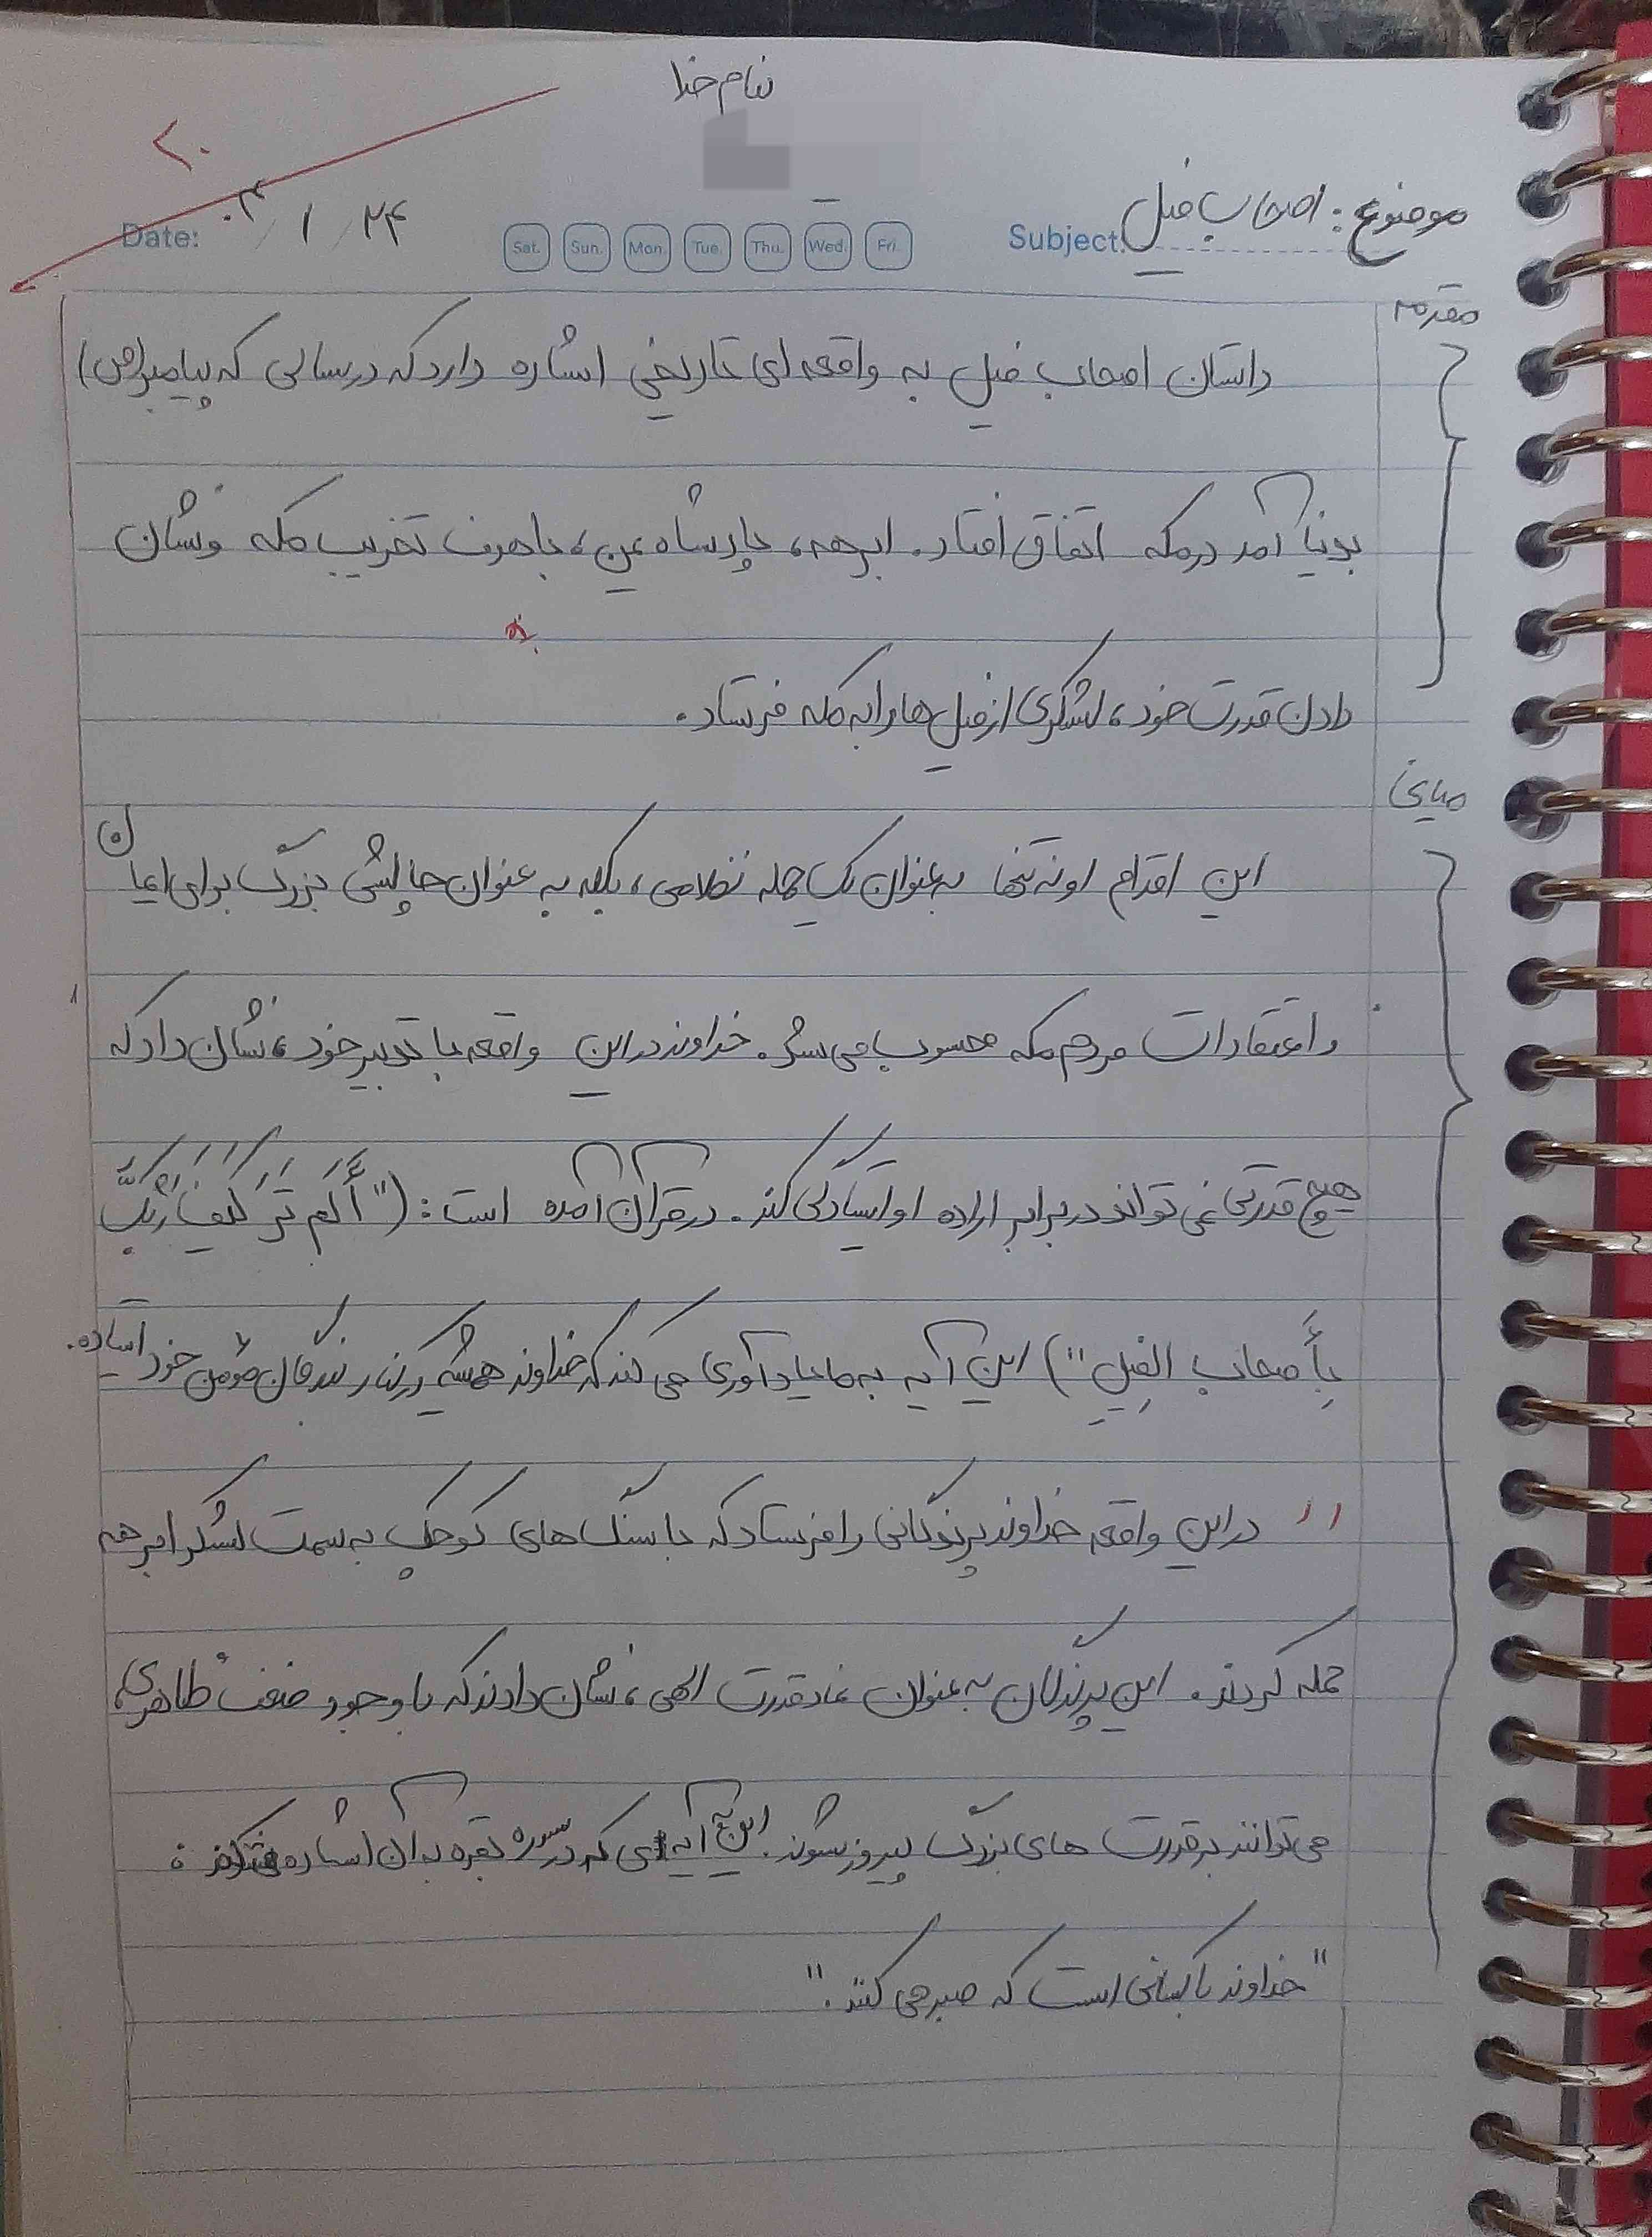 بنام خدا
۲۰
موضوع: اصحاب فیل
Date: ۰۴ / ۱ / ۲۴ Sat. Sun. Mon. Tue. Thu. Wed. Fri. Subject:
مقدمه
داستان اصحاب فیل به واقعه‌ای تاریخی اشاره دارد که در سالی که پیامبر (ص)
بدنیا آمد در مکه اتفاق افتاد. ابرهه، پادشاه یمن، با هدف تخریب مکه و نشان
دادن قدرت خود، لشکری از فیل‌ها را به مکه فرستاد.
میانی
این اقدام او نه تنها به عنوان یک حمله نظامی، بلکه به عنوان چالشی بزرگ برای ایمان
و اعتقادات مردم مکه محسوب می‌شد. خداوند در این واقعه با تدبیر خود، نشان داد که
هیچ قدرتی نمی‌تواند در برابر اراده او ایستادگی کند. در قرآن آمده است: ("أَلَم تَرَ کَیفَ رَبُّکَ
بِأَصحاب الفِیلِ") این آیه به ما یادآوری می‌کند که خداوند همیشه در کنار بندگان مؤمن خود ایستاده.
در این واقعه خداوند پرندگانی را فرستاد که با سنگ‌های کوچک به سمت لشکر ابرهه
حمله کردند. این پرندگان به عنوان نماد قدرت الهی، نشان دادند که با وجود ضعف ظاهری،
می‌توانند بر قدرت های بزرگ پیروز شوند. این آیه‌ای که در سوره بقره به آن اشاره
"خداوند با کسانی است که صبر می کنند."